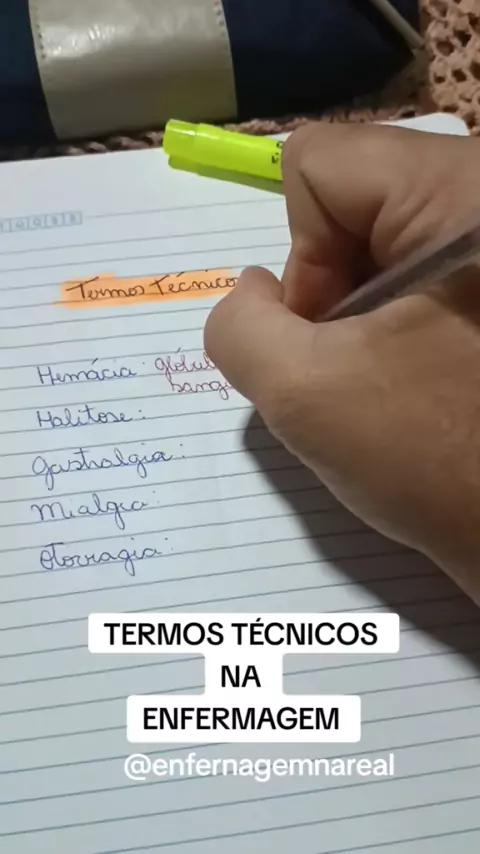 Termos Técnicos
Hemácia:
Halitose:
Gastralgia:
Mialgia:
Otorragia:
TERMOS TÉCNICOS
NA
ENFERMAGEM
@enfernagemnareal